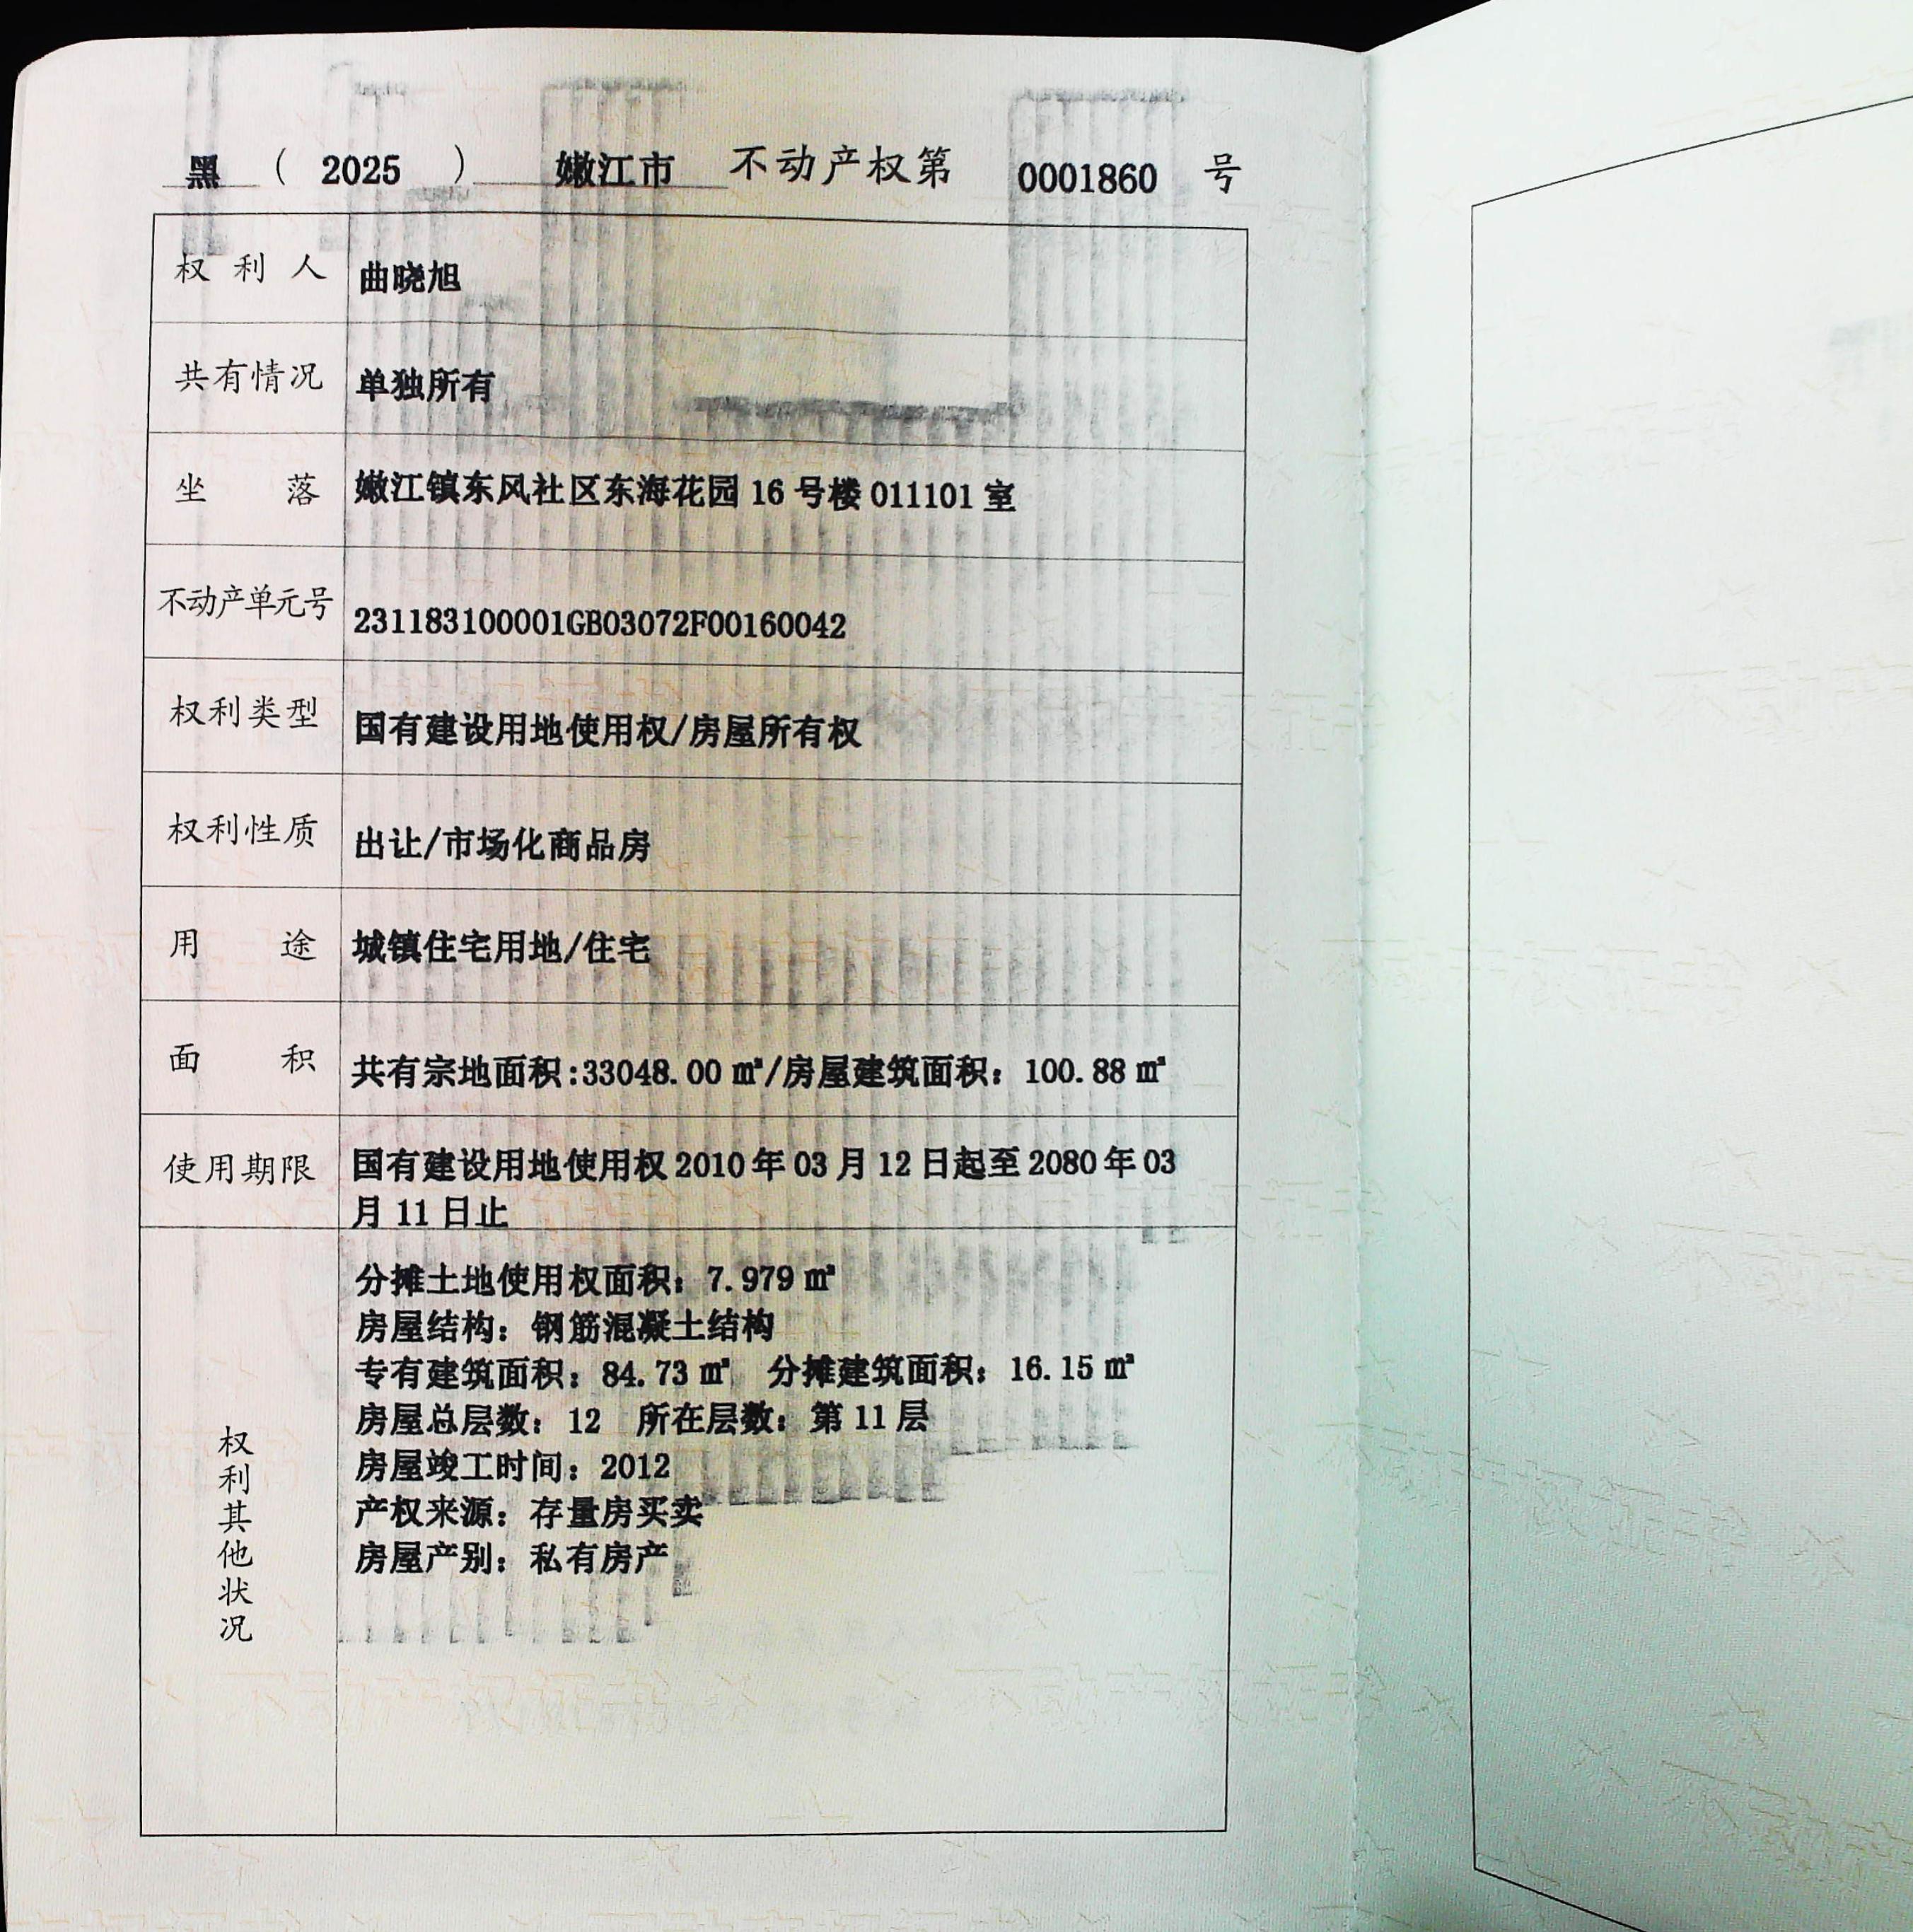 黑（2025）嫩江市不动产权第0001860号
权利人 曲晓旭
共有情况 单独所有
坐落 嫩江镇东风社区东海花园16号楼011101室
不动产单元号 231183100001GB03072F00160042
权利类型 国有建设用地使用权/房屋所有权
权利性质 出让/市场化商品房
用途 城镇住宅用地/住宅
面积 共有宗地面积:33048.00㎡/房屋建筑面积：100.88㎡
使用期限 国有建设用地使用权2010年03月12日起至2080年03
月11日止
权利其他状况
分摊土地使用权面积：7.979㎡
房屋结构：钢筋混凝土结构
专有建筑面积：84.73㎡ 分摊建筑面积：16.15㎡
房屋总层数：12 所在层数：第11层
房屋竣工时间：2012
产权来源：存量房买卖
房屋产别：私有房产